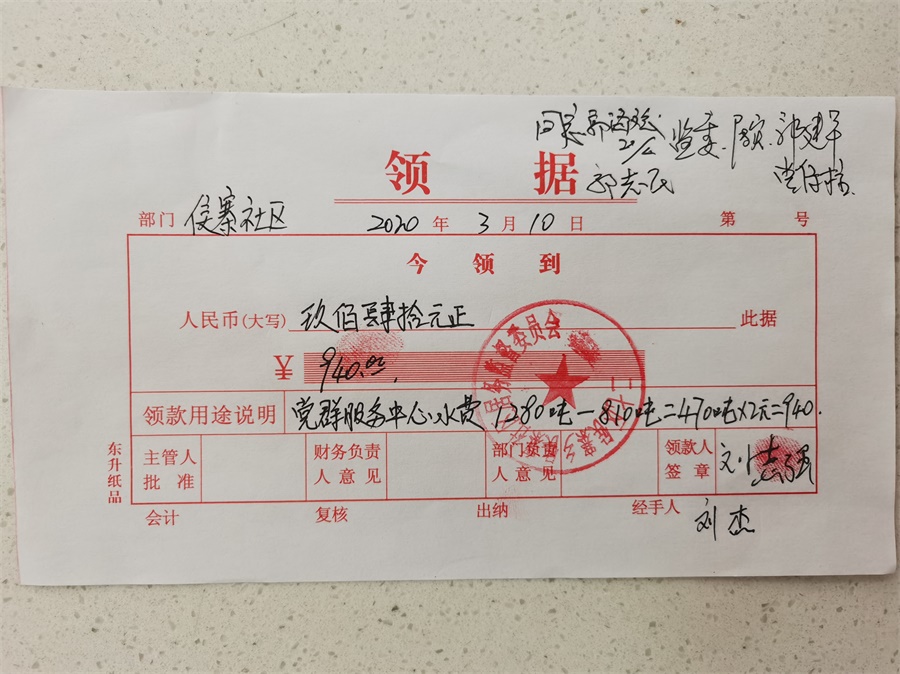 同意
监委
领 据
部门 侯寨社区 2020 年 3 月 10 日 第 号
今 领 到
人民币(大写) 玖佰肆拾元正 此据
¥ 940.00.
居务监督委员会
领款用途说明 党群服务中心水费 1280吨-810吨=470吨×2元=940.
主管人批准 财务负责人意见 部门负责人意见 领款人签章 刘志强
东升纸品
会计 复核 出纳 经手人 刘杰